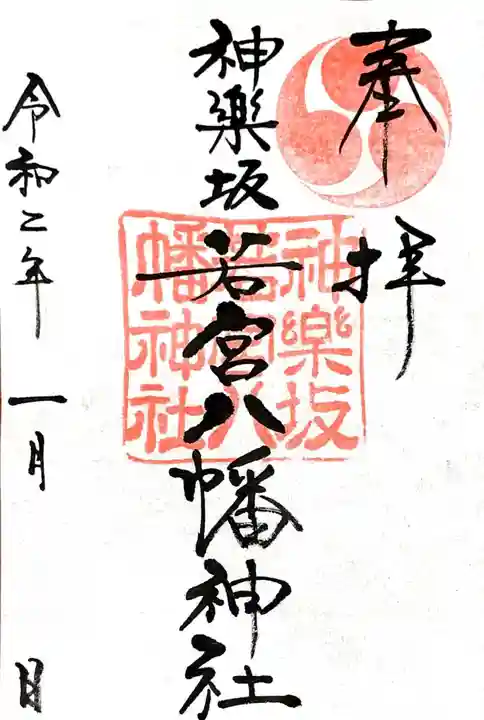 奉拝
神樂坂若宮八幡神社
神樂坂
若宮八
幡神社
令和二年 一月 日